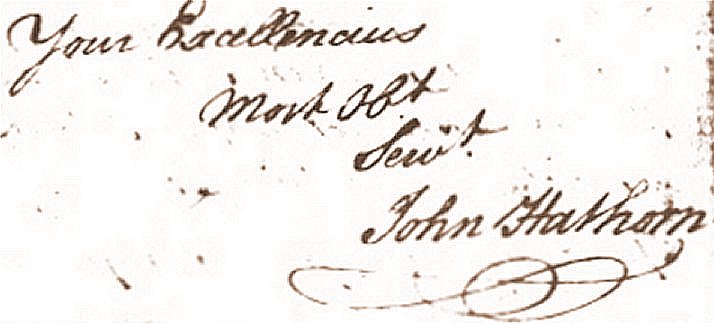 Your Excellencius
Most Obt
Servt.
John Hathorn